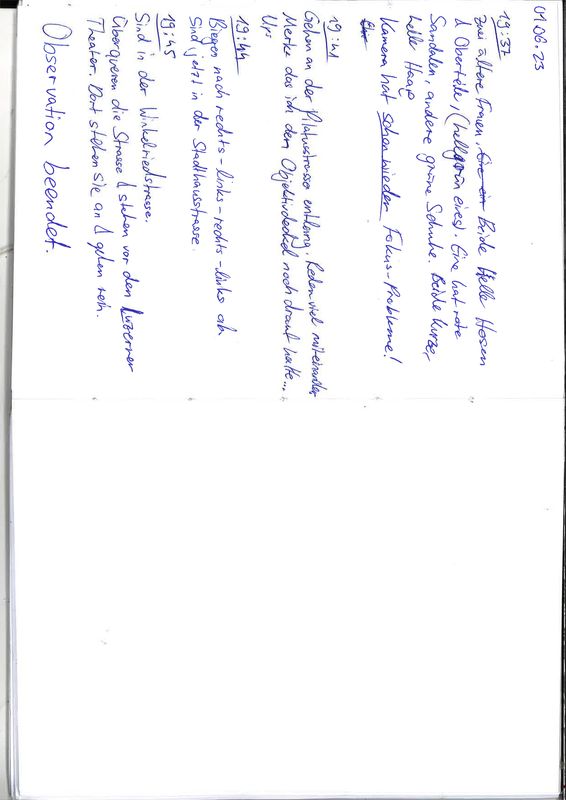 01.06.23
19:37
Zwei ältere Frauen, Beide Helle Hosen
& Oberteile, (hellgrün eines). Eine hat rote
Sandalen, andere grüne Schuhe. Beide kurze,
helle Haar
Kamera hat schon wieder Fokus-Probleme!
19:41
Gehen an der Pilatusstrasse entlang. Reden viel miteinander
Merke das ich den Objektivdeckel noch drauf hatte...
Ur:
19:44
Biegen nach rechts-links-rechts-links ab
Sind jetzt in der Stadthausstrasse.
19:45
Sind in der Winkelriedstrasse.
Überqueren die Strasse & stehen vor den Luzerner
Theater. Dort stehen sie an & gehen rein.
Observation beendet.